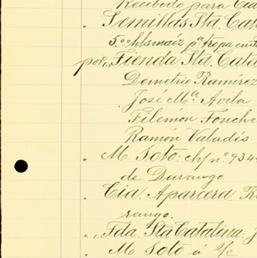 Recibido para Cia
Semillas Sta. Cata
5.00 hls maíz pª tropa en
por, Tienda Sta. Cata
Demetrio Ramírez
José Mª Avila
Filemón Fonche
Ramón Valadés
M Soto ch/ nº 934
de Durango
Cia. Aparcera
rango.
Fda Sta Catalina
M Soto á s/c